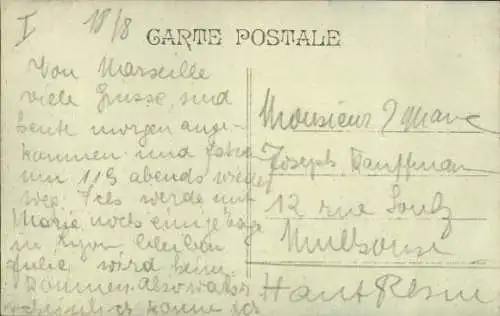 I 18/8
CARTE POSTALE
Von Marseille
viele Grüsse, sind
heute morgen ange-
kommen und fahren
um 119 abends wieder
weg. Ich werde mit
Marie noch einige Tage
in Lyon bleiben
Julie wird heim
kommen. Also wahr-
scheinlich komme ich
Monsieur
Joseph Kauffman
12 rue Soulz
Mulhouse
Haut Rhin